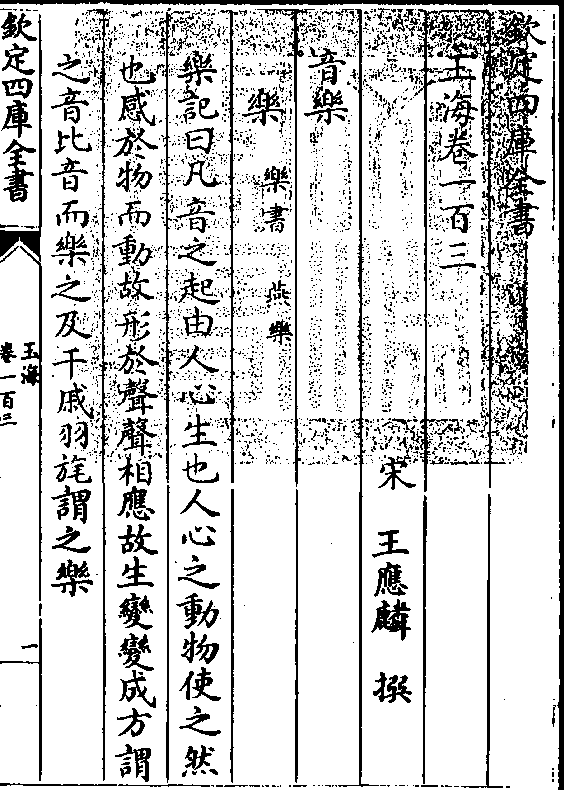 欽定四庫全書
玉海卷一百三
宋 王應麟 撰
音樂
樂 樂書 燕樂
樂記曰凡音之起由人心生也人心之動物使之然
也感於物而動故形於聲聲相應故生變變成方謂
之音比音而樂之及干戚羽旄謂之樂
欽定四庫全書
玉海
卷一百三
一